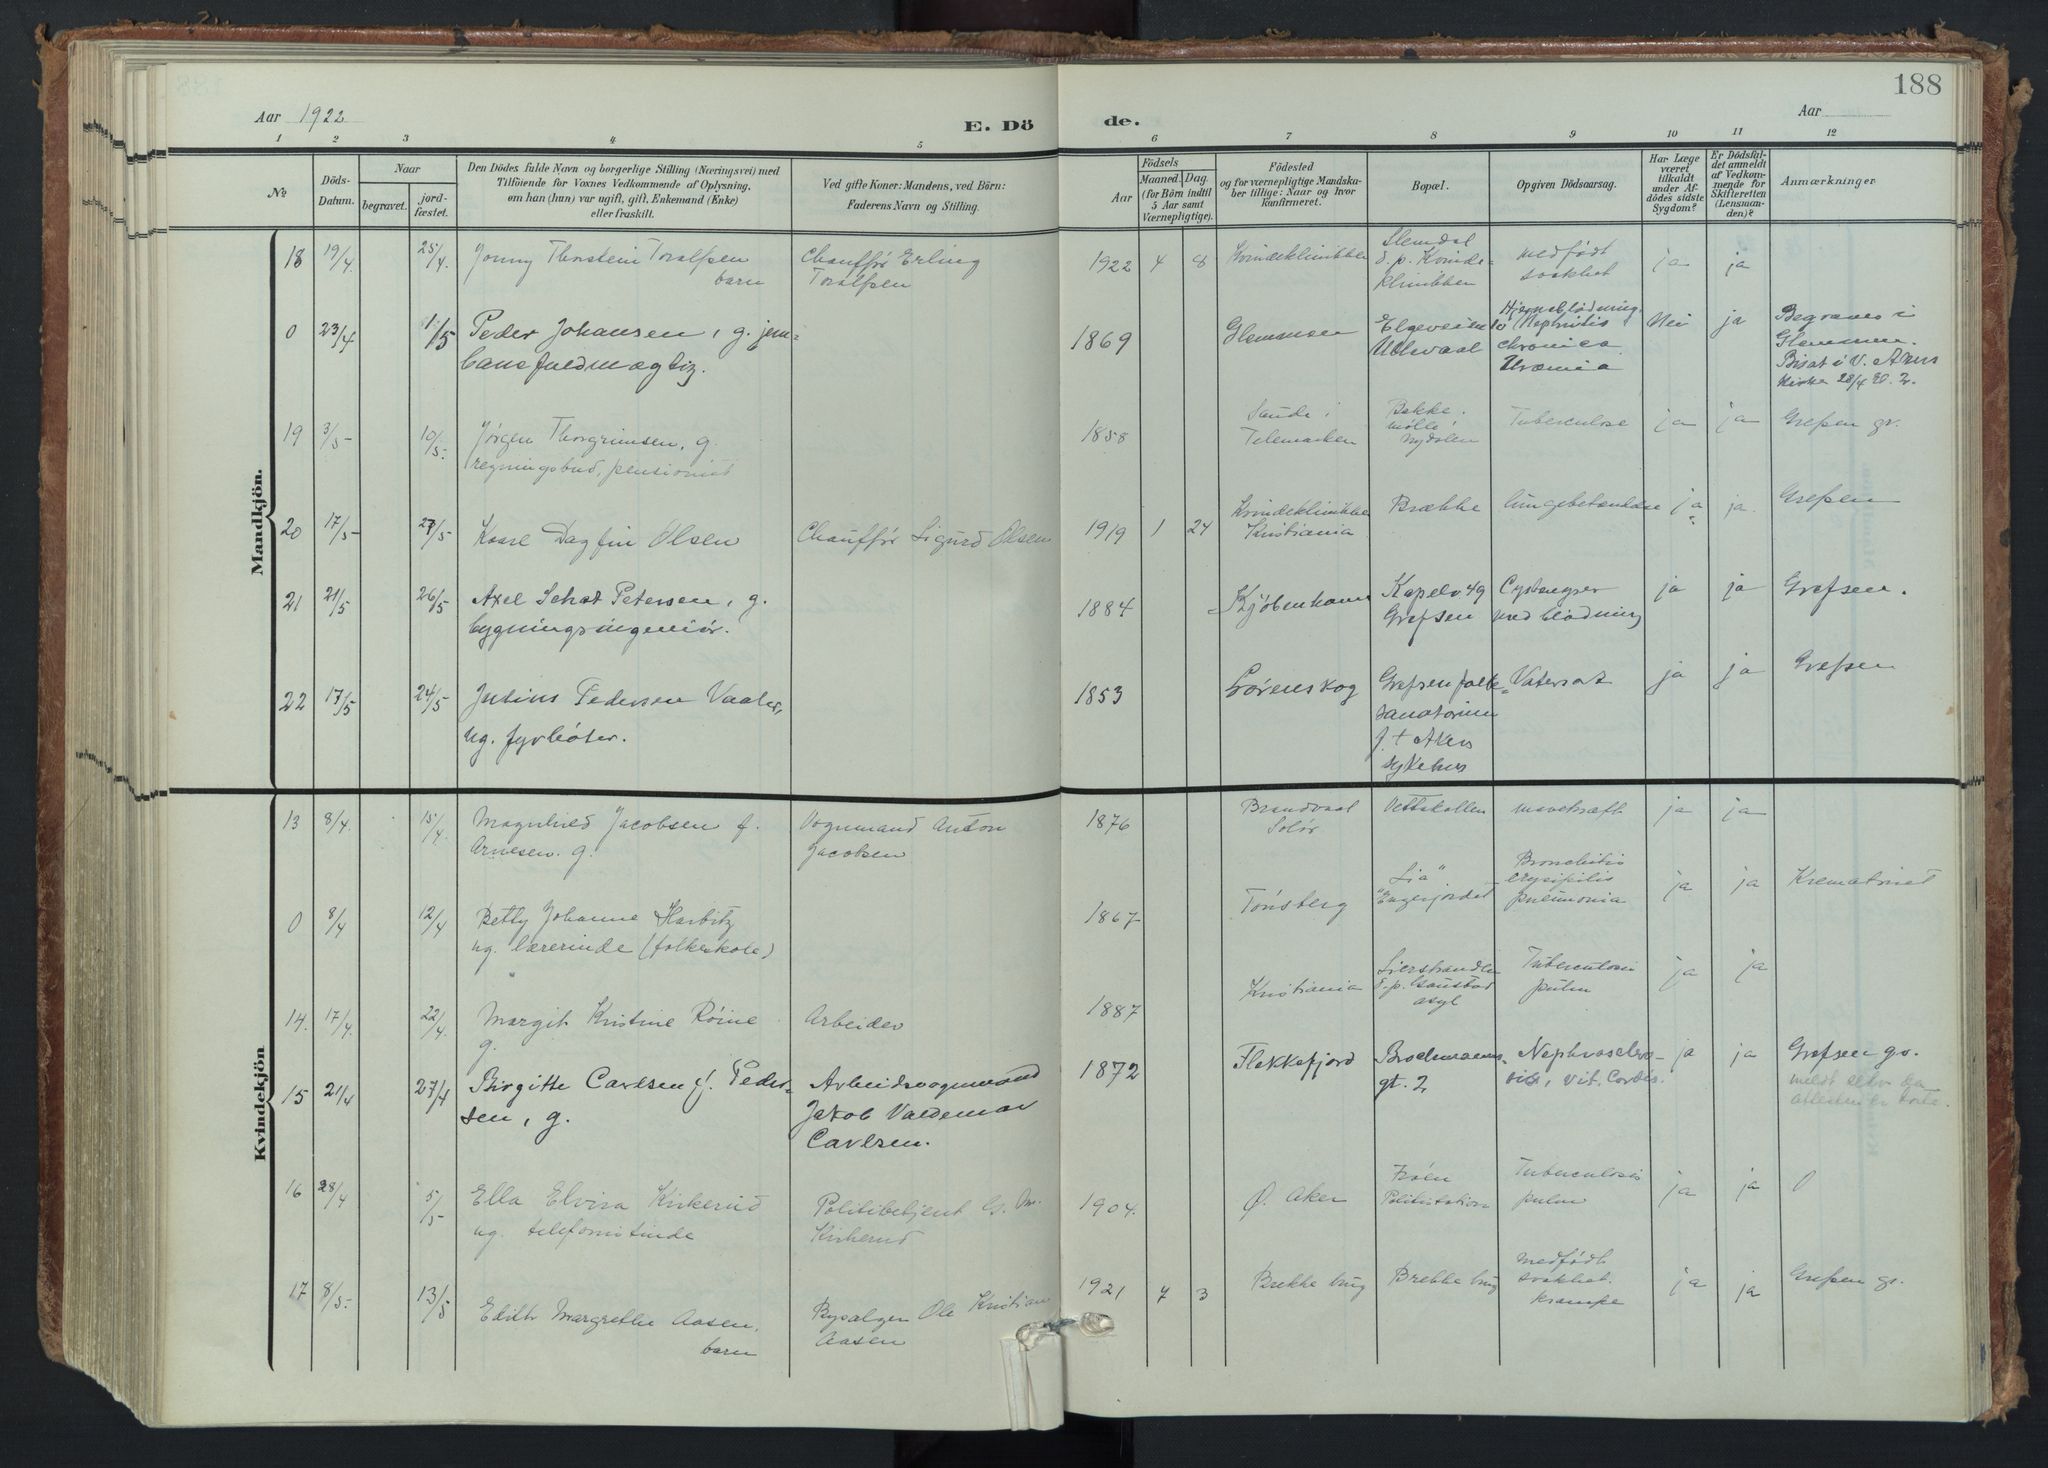 188
Aar 1922
E. Dö
de.
Aar
1 2 3 4 5 6 7 8 9 10 11 12
№
Döds-
Datum.
Naar
begravet.
jord-
fæstet.
Den Dödes fulde Navn og borgerlige Stilling (Næringsvei) med
Tilföiende for Voxnes Vedkommende af Oplysning,
om han (hun) var ugift, gift, Enkemand (Enke)
eller fraskilt.
Ved gifte Koner: Mandens, ved Börn:
Faderens Navn og Stilling.
Födsels
Aar
Maaned Dag
(for Börn indtil
5 Aar samt
Værnepligtige).
Födested
og for værnepligtige Mandska-
ber tillige: Naar og hvor
Konfirmeret.
Bopæl.
Opgiven Dödsaarsag.
Har Læge
været
tilkaldt
under Af-
dödes sidste
Sygdom?
Er Dödsfal-
det anmeldt
af Vedkom-
mende for
Skifteretten
(Lensman-
den)?
Anmærkninger
Mandkjön.
18 19/4. 25/4. Jonny Thorstein Toralfsen
barn
Chauffør Erling
Toralfsen
1922 4 8 Kvindeklinikken
Slemdal
d. p. Kvinde-
klinikken
medfødt
svakhet
ja ja
0 23/4 1/5 Peder Johansen, g. jern-
banefuldmægtig.
1869 Glemmen
Elgeveien 10
Ullevaal
Hjerneblødning
Nephritis
chronica
Uræmia
Nei ja
Begraves i
Glemmen.
Bisat i V. Akers
Kirke 28/4
19 3/5- 10/5- Jørgen Thorgrimsen, g.
regningsbud, pensionist
1858 Saude i
Telemarken
Bekke
mølle i
Nydalen
Tuberculose ja ja Grefsen gr.
20 17/5- 27/5 Kaare Dagfin Olsen
Chauffør Sigurd Olsen
1919 1 24 Kvindeklinikke
Kristiania
Brække lungebetændelse ja ja. Grefsen
21 21/5 26/5 Axel Schat Petersen, g.
bygningsingeniør.
1884 Kjøbenhavn
Kapelv 49
Grefsen
Cystenyrer
med blødning
ja ja Grefsen.
22 17/5 24/5 Julius Pedersen Vaaler,
ug. fyrbøter.
1853 Lørenskog
Grefsen folke-
sanatorium
f. t Akers
sykehus
Vatersot ja ja Grefsen
Kvindekjön
13 8/4. 15/4. Magnhild Jacobsen f.
Arnesen. g.
Vognmand Anton
Jacobsen
1876 Brandvaal
Solør
Vettakollen mavekræft ja ja
0 8/4 12/4 Betty Johanne Harbitz
ug. lærerinde (folkeskole)
1867 Tønsberg
"Lia"
Engerjordet
Bronchitis
erysipilis
pneumonia
ja ja Krematoriet
14. 17/4. 22/4. Margit Kristine Røine
g.
Arbeider
1887 Kristiania
Lierstranden
d. p. Gaustad
asyl
Tuberculosis
pulm
ja ja
15 21/4 27/4 Birgitte Carlsen f. Peder-
sen, g.
Arbeidsvognmand
Jakob Valdemar
Carlsen.
1872 Flekkefjord
Brochmanns-
gt. 2
Nephroscler-
osis, Vit. Cordis.
ja ja Grefsen gr.
16 28/4 5/5 Ella Elvira Kirkerud
ug. telefonistinde
Politibetjent G. M.
Kirkerud
1904. Ø. Aker
Frøen
Politistation
Tuberculosis
pulm
ja ja 0
17 8/5- 13/5 Edith Margrethe Aasen,
barn
Bypælgen Ole Kristian
Aasen
1921 7 3 Brekke brug Brekke brug
Medfødt
svakhet.
krampe
ja ja Grefsen gr.